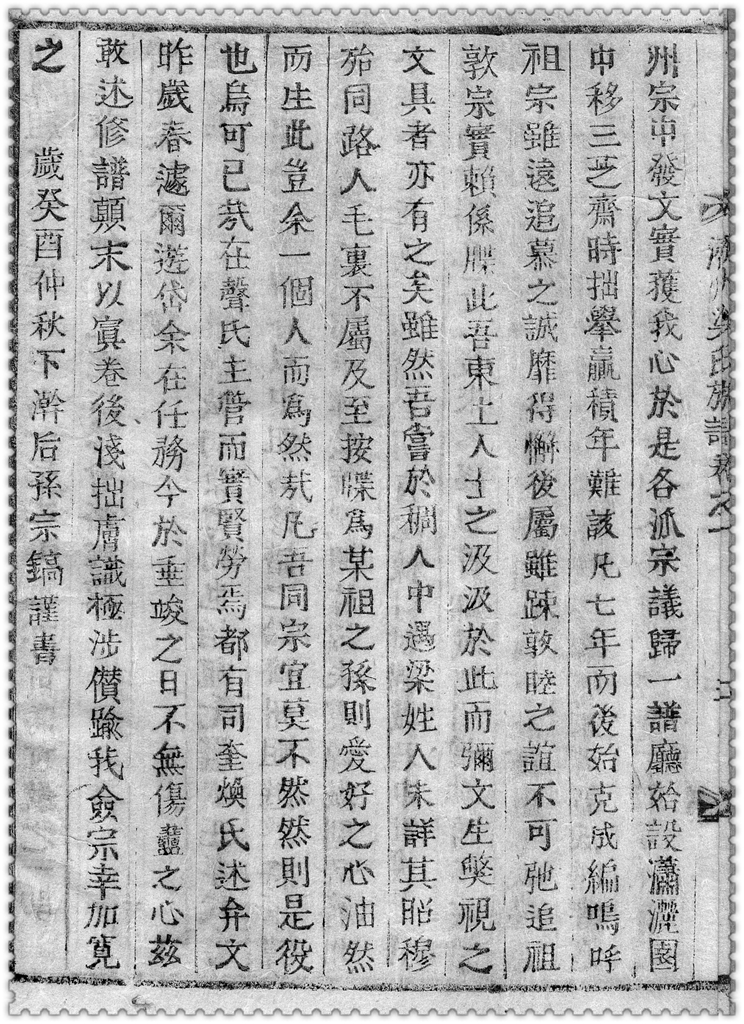 濟州梁氏族譜卷之一
州宗中發文實獲我心於是各派宗議歸一譜廳始設瀟灑園
中移三芝齋時拙舉贏積年難該凡七年而後始克成編嗚呼
祖宗雖遠追慕之誠靡得懈後屬雖疎敦睦之誼不可弛追祖
敦宗實賴係牒此吾東土人士之汲汲於此而彌文生獘視之
文具者亦有之矣雖然吾嘗於稠人中遇梁姓人未詳其昭穆
殆同路人毛裏不屬及至按牒爲某祖之孫則愛好之心油然
而生此豈余一個人而爲然㢤凡吾同宗宜莫不然然則是役
也烏可已㢤在聲氏主管而實賢勞焉都有司奎煥氏述弁文
昨歲春遽爾遊岱余在任務今於垂竣之日不無傷衋之心茲
敢述修譜顛末以寘卷後淺拙膚識極涉僣踰我僉宗幸加寬
之
歲癸酉仲秋下澣后孫宗鎬謹書